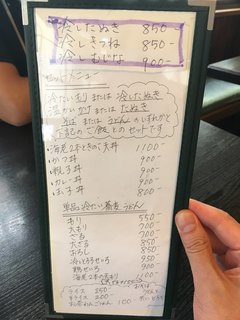 冷したぬき 850-
冷しきつね 850-
冷しむじな 900-
メニュー
冷たいもり または 冷したぬき
温かいかけ または たぬき
そば または うどん のいずれかと
下記の ご飯 との セット です
・海老2本ときのこ天丼 1100-
・かつ丼 900-
・親子丼 900-
・カレー丼 900-
・玉子丼 800-
単品 冷たい蕎麦、うどん
もり 550-
大もり 700-
ざる 700-
大ざる 850-
おろし 850-
冷しとろろせいろ 950-
鴨せいろ 900-
海老2本の天もり 1100-
ライス 250-
半ライス 200-
100-